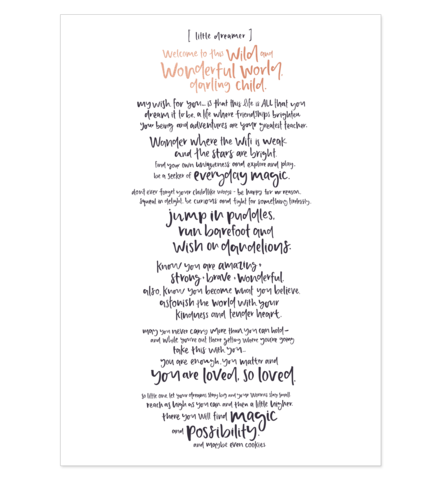 [ little dreamer ]
Welcome to this Wild and
Wonderful World,
darling child.
my wish for you... is that this life is ALL that you
dream it to be, a life where friendships brighten
your being and adventures are your greatest teacher.
Wander where the Wifi is weak
and the stars are bright.
find your own uniqueness and explore and play,
be a seeker of everyday magic.
don't ever forget your childlike ways - be happy for no reason,
squeal in delight, be curious and fight for something fiercely.
jump in puddles,
run barefoot and
wish on dandelions.
Know you are amazing +
strong + brave + wonderful.
also, know you become what you believe.
astonish the world with your
kindness and tender heart.
may you never carry more than you can hold -
and while you're out there getting where you're going
take this with you...
you are enough, you matter and
you are loved, so loved.
so little one let your dreams stay big and your worries stay small.
reach as high as you can and then a little higher.
there you will find magic
and possibility.
and maybe even cookies